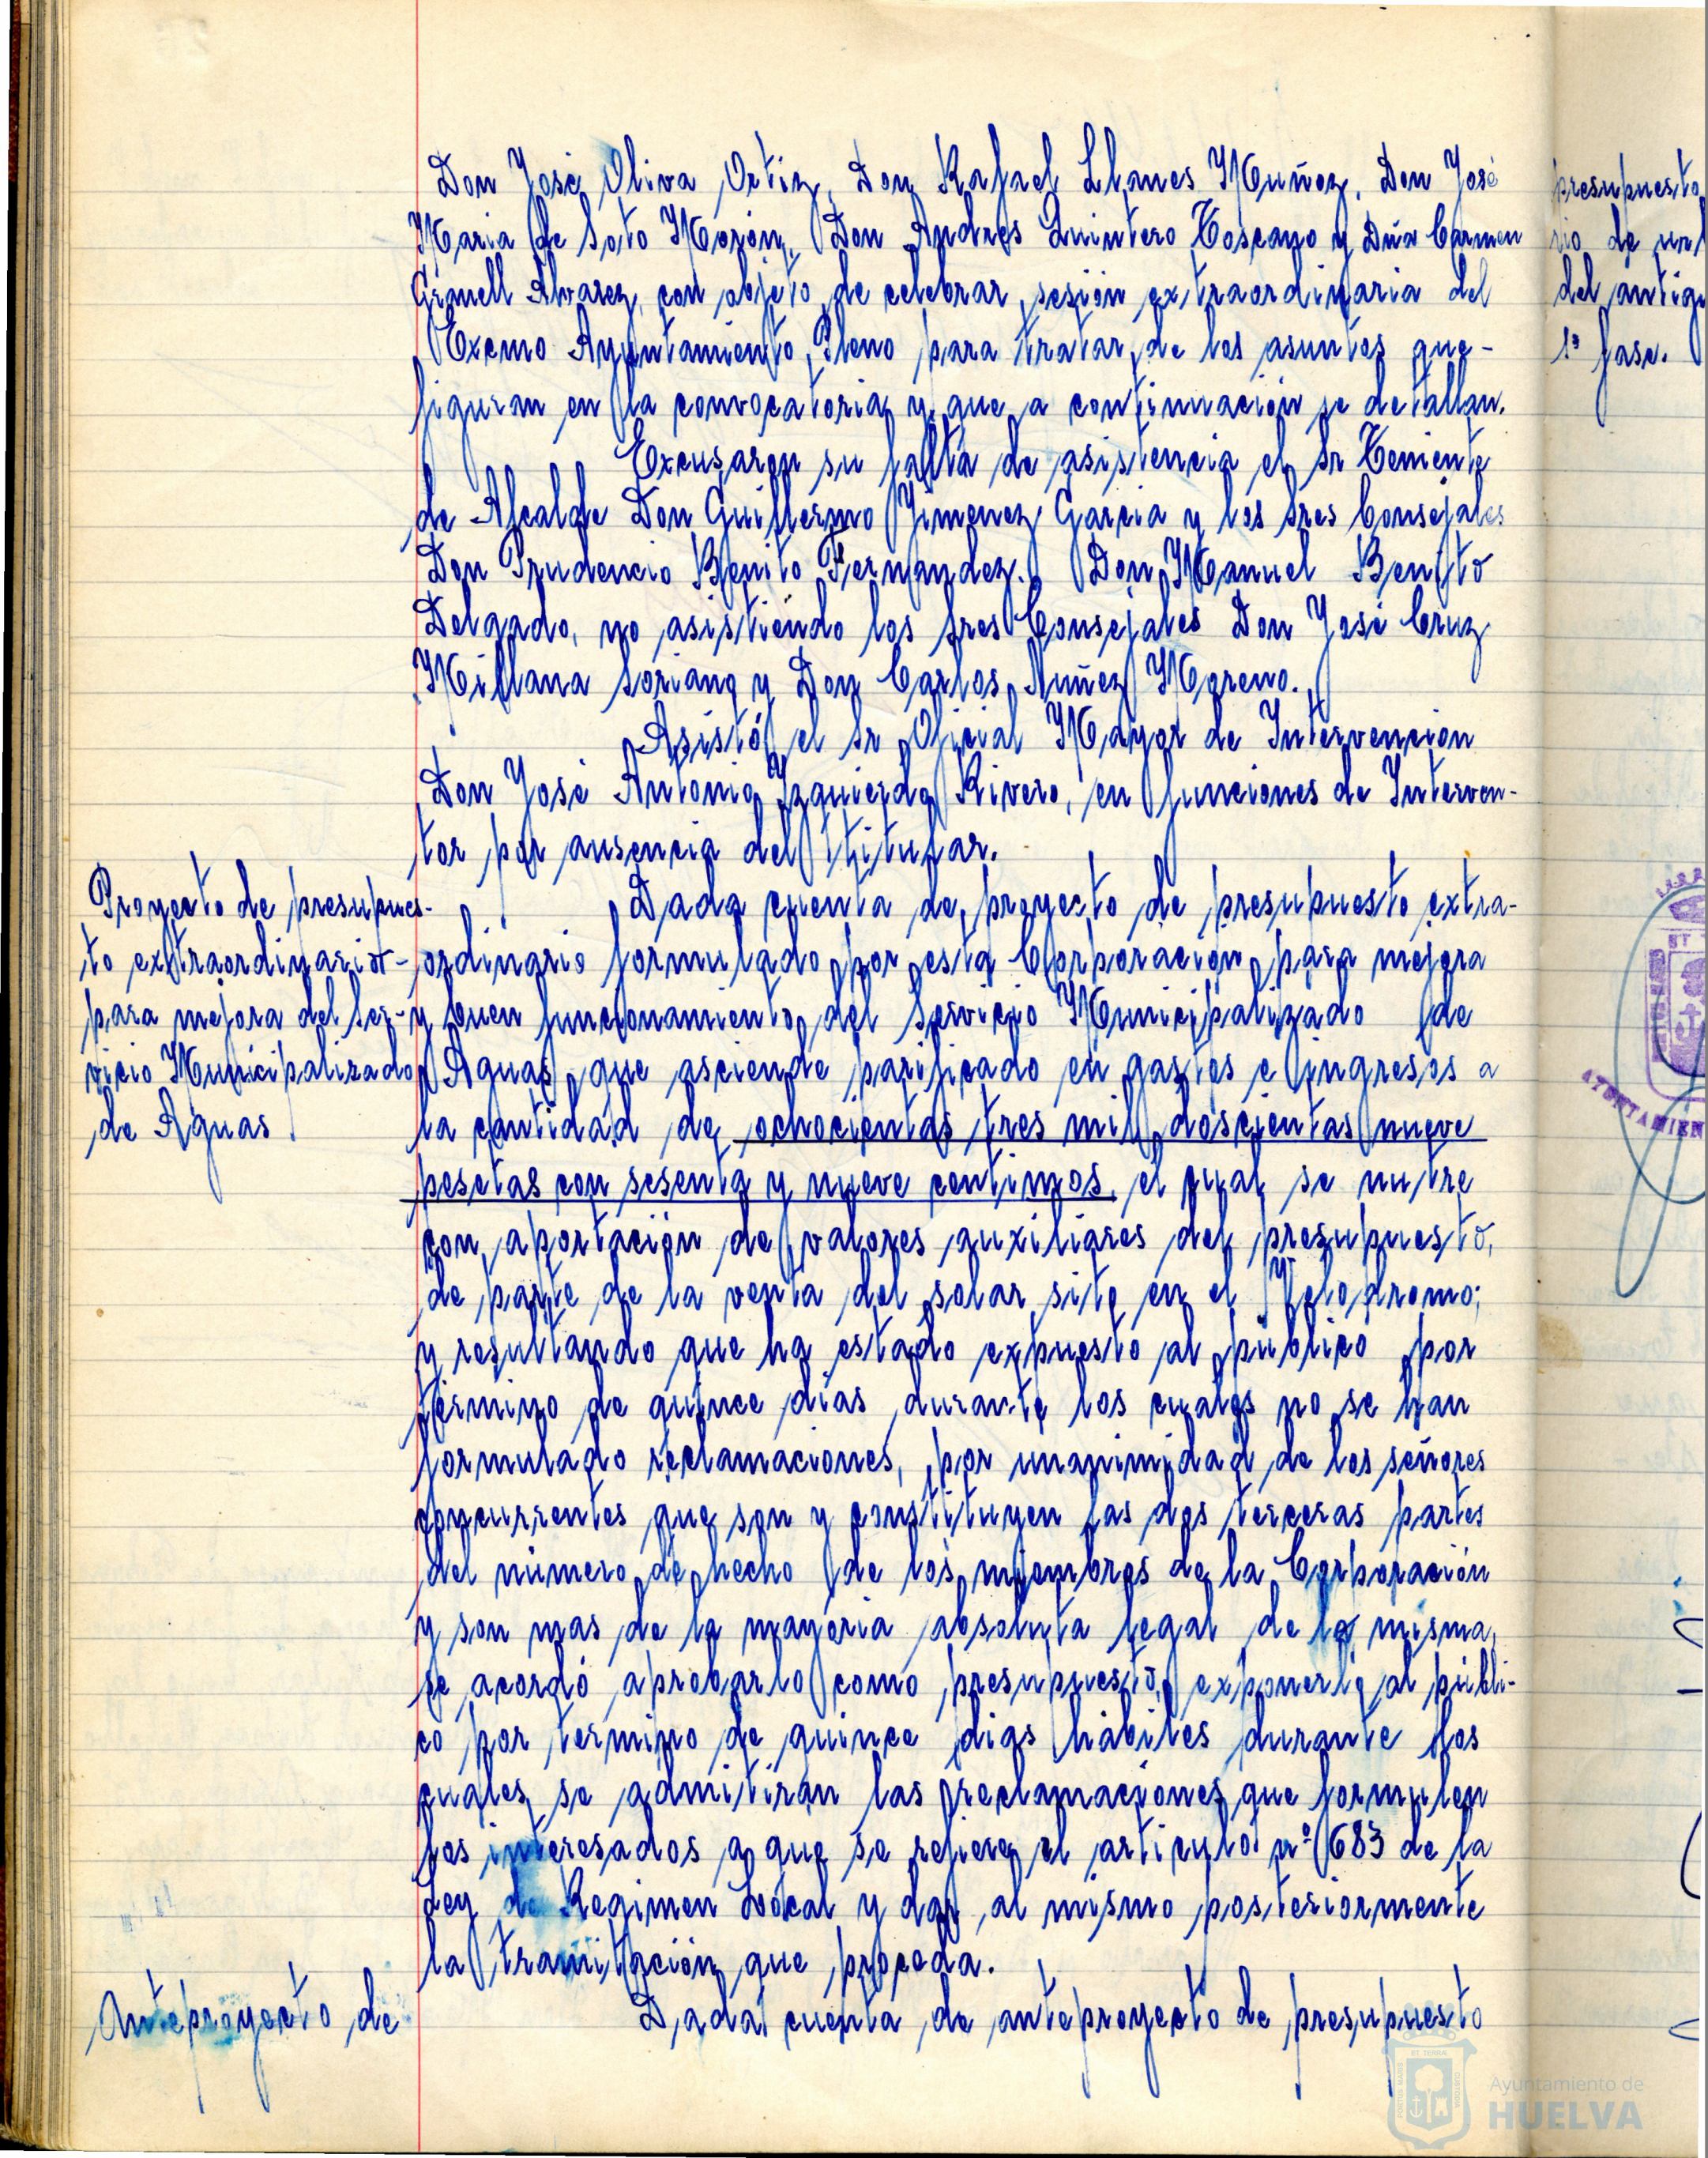 Don José Oliva Ortiz, Don Rafael Llanes Muñoz, Don José
Maria de Soto Morón, Don Andres Quintero Toscano y Dña Carmen
Granell Alvarez, con objeto de celebrar sesión extraordinaria del
Excmo Ayuntamiento Pleno para tratar de los asuntos que-
figuran en la convocatoria y que a continuación se detallan.
Excusaron su falta de asistencia el Sr Teniente
de Alcalde Don Guillermo Jimenez Garcia y los Sres Consejales
Don Prudencio Benito Fernandez. Don Manuel Benito
Delgado, no asistiendo los Sres Consejales Don José Cruz
Millana Soriano y Don Carlos Nuñez Moreno.
Asistó el Sr Oficial Mayor de Intervención
Don José Antonio Izquierdo Rivero, en funciones de Interven-
tor por ausencia del titular.
Proyecto de presupues-
to extraordinario-
para mejora del Ser-
vicio Municipalizado
de Aguas
Dada cuenta de proyecto de presupuesto extra-
ordinario formulado por esta Corporación para mejora
y buen funcionamiento del Servicio Municipalizado de
Aguas que asciende parificado en gastos e ingresos a
la cantidad de ochocientas tres mil doscientas nueve
pesetas con sesenta y nueve centimos, el cual se nutre
con aportación de valores auxiliares del presupuesto,
de parte de la venta del solar sito en el Velodromo;
y resultando que ha estado expuesto al público por
termino de quince dias durante los cuales no se han
formulado reclamaciones, por unanimidad de los señores
concurrentes que son y constituyen las dos terceras partes
del número de hecho de los miembros de la Corporación
y son mas de la mayoria absoluta legal de la misma,
se acordó aprobarlo como presupuesto, exponerlo al públi-
co por termino de quince dias hábiles durante los
cuales se admitirán las reclamaciones que formulen
los interesados a que se refiere el articulo nº 683 de la
Ley de Regimen Local y dar al mismo posteriormente
la tramitación que proceda.
Anteproyecto de
Dada cuenta de anteproyecto de presupuesto
presupuesto
rio de
del antig
1ª fase.
Ayuntamiento de
HUELVA